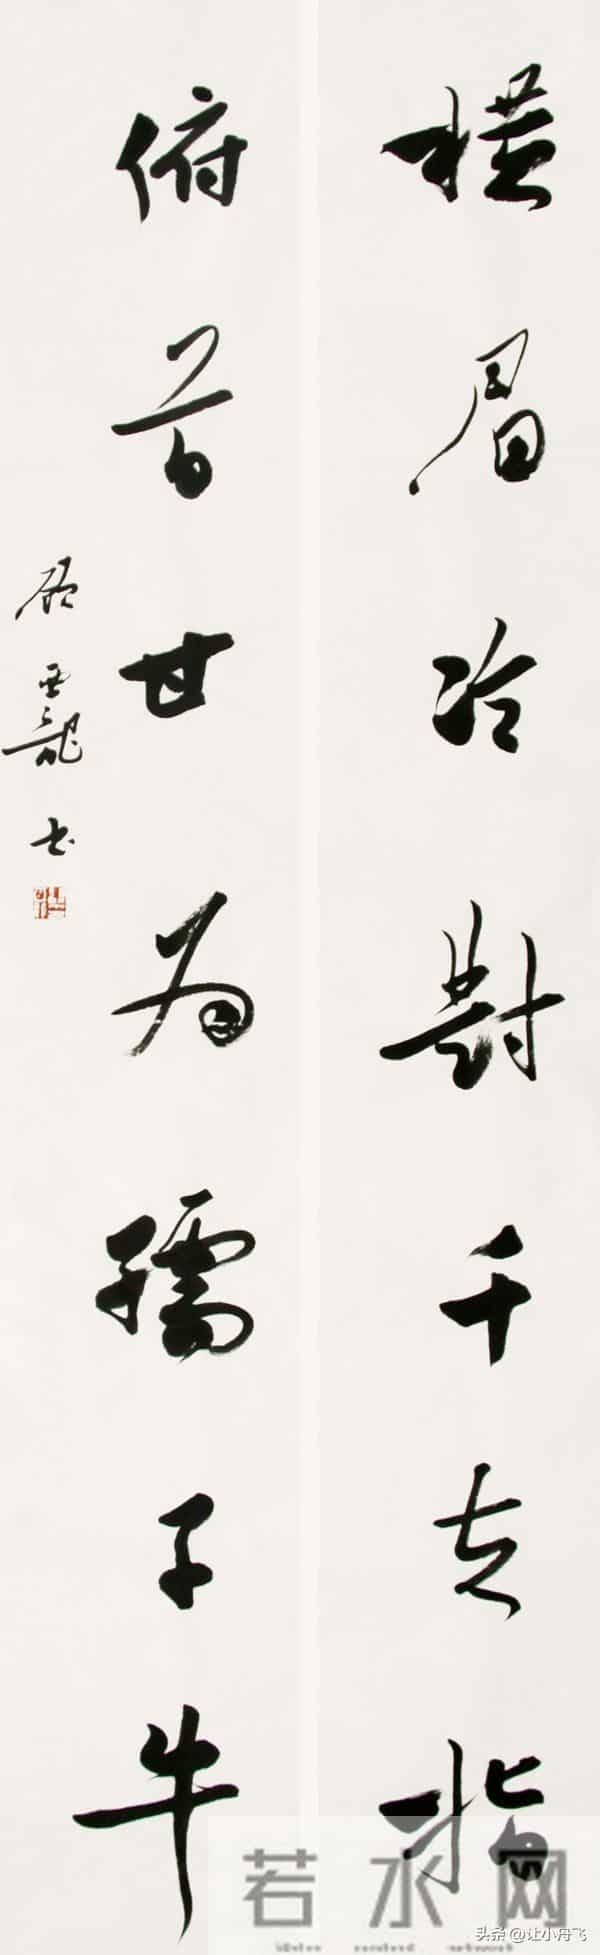 横眉冷對千夫指
俯首甘为孺子牛
雲龍书
若水网
头条@让小舟飞